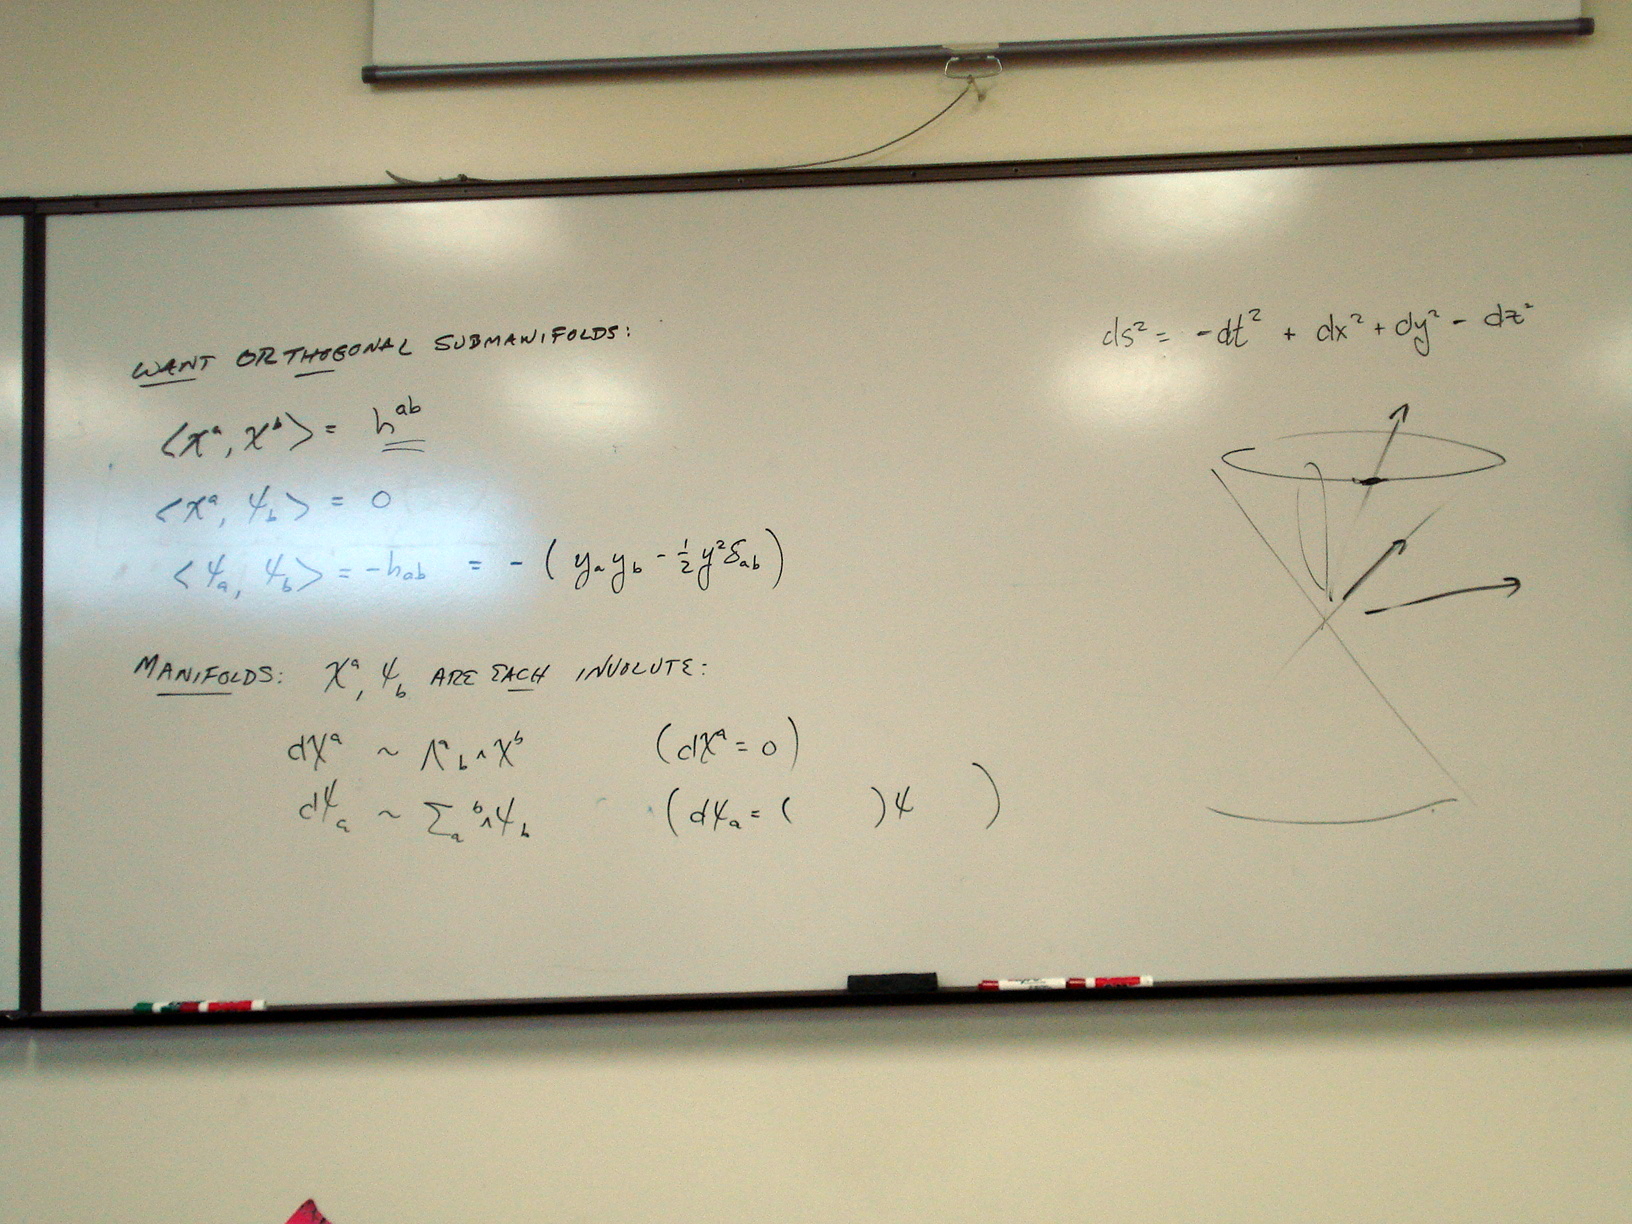 WANT ORTHOGONAL SUBMANIFOLDS:
⟨χᵃ, χᵇ⟩ = hᵃᵇ
⟨χᵃ, ψ_b⟩ = 0
⟨ψ_a, ψ_b⟩ = -h_ab = -(y_a y_b - ½y²δ_ab)
MANIFOLDS: χᵃ, ψ_b ARE EACH INVOLUTE:
dχᵃ ~ Λᵃ_b ∧ χᵇ (dχᵃ = 0)
dψ_a ~ Σ_aᵇ ∧ ψ_b (dψ_a = ( )ψ )
ds² = -dt² + dx² + dy² - dz²